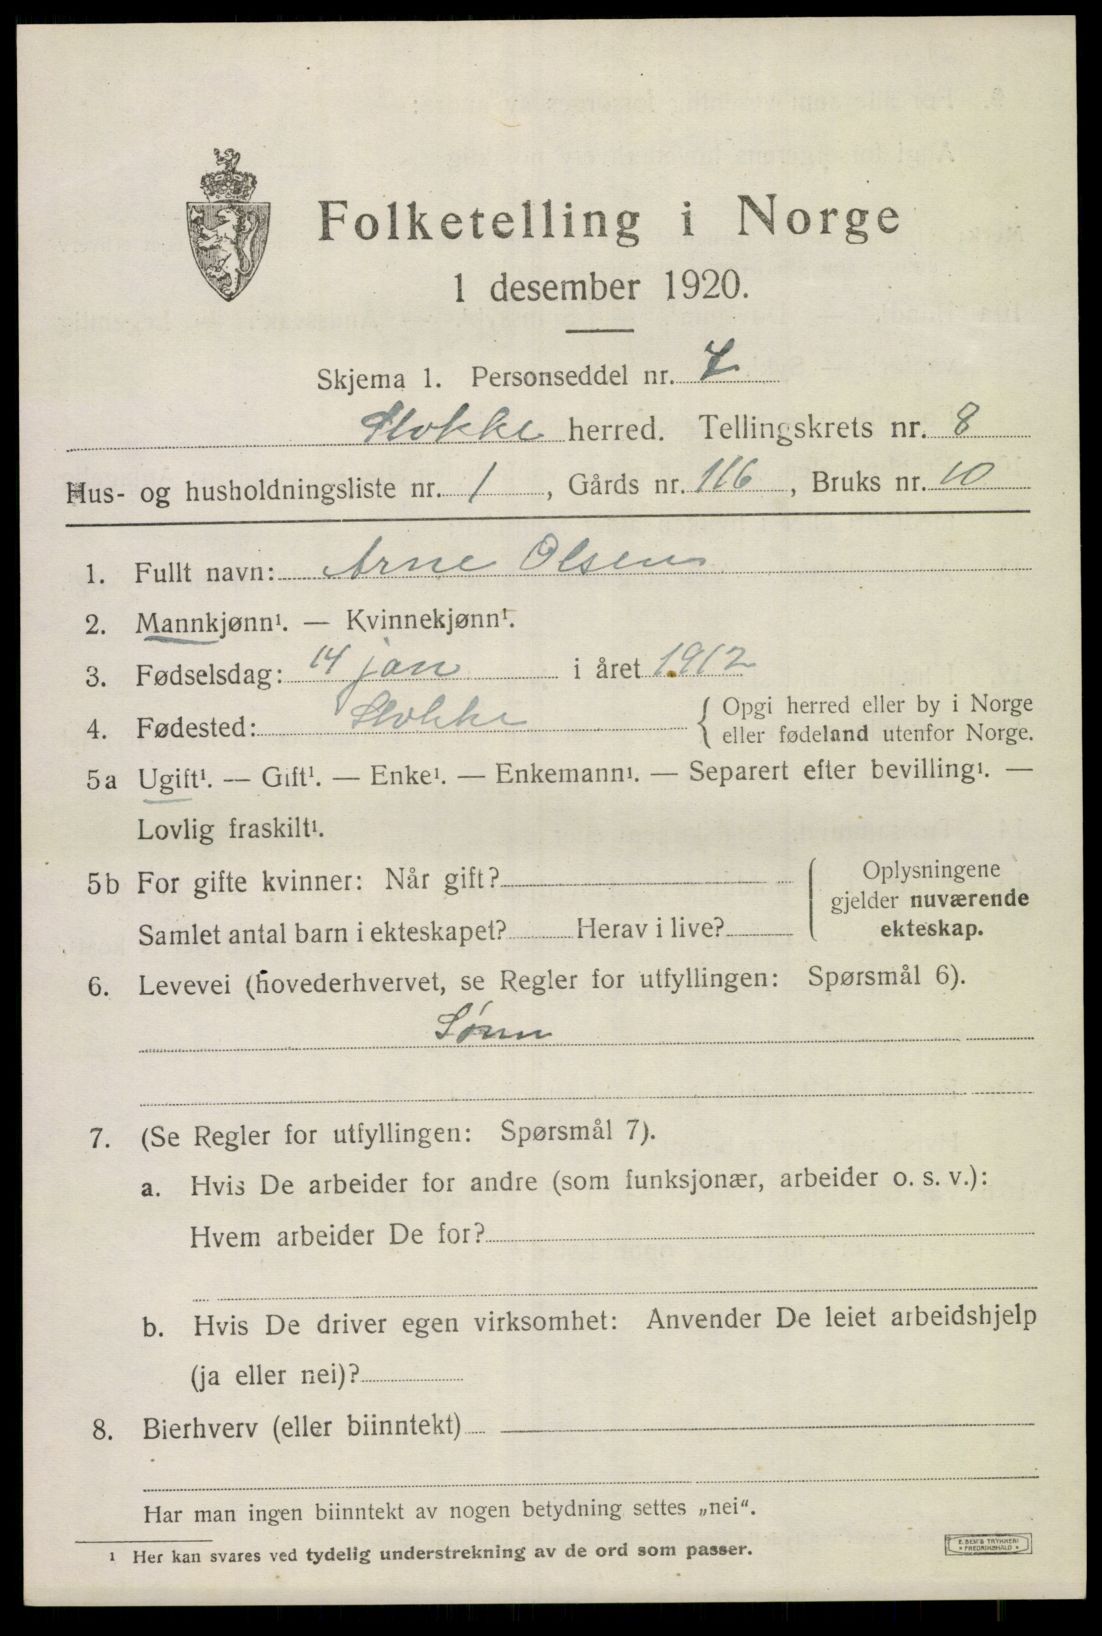 Folketelling i Norge
1 desember 1920.
Skjema 1. Personseddel nr. 7
Stokke herred. Tellingskrets nr. 8
Hus- og husholdningsliste nr. 1, Gårds nr. 116, Bruks nr. 10
1. Fullt navn: Arne Olsen
2. Mannkjønn¹. — Kvinnekjønn¹.
3. Fødselsdag: 14 jan i året 1912
4. Fødested: Stokke { Opgi herred eller by i Norge
eller fødeland utenfor Norge.
5a Ugift¹. — Gift¹. — Enke¹. — Enkemann¹. — Separert efter bevilling¹. —
Lovlig fraskilt¹.
5b For gifte kvinner: Når gift?
Samlet antal barn i ekteskapet? Herav i live?
{ Oplysningene
gjelder nuværende
ekteskap.
6. Levevei (hovederhvervet, se Regler for utfyllingen: Spørsmål 6).
Sønn
7. (Se Regler for utfyllingen: Spørsmål 7).
a. Hvis De arbeider for andre (som funksjonær, arbeider o. s. v.):
Hvem arbeider De for?
b. Hvis De driver egen virksomhet: Anvender De leiet arbeidshjelp
(ja eller nei)?
8. Bierhverv (eller biinntekt) —
Har man ingen biinntekt av nogen betydning settes „nei“.
¹ Her kan svares ved tydelig understrekning av de ord som passer.
E. SEM'S TRYKKERI
* FREDRIKSHALD *